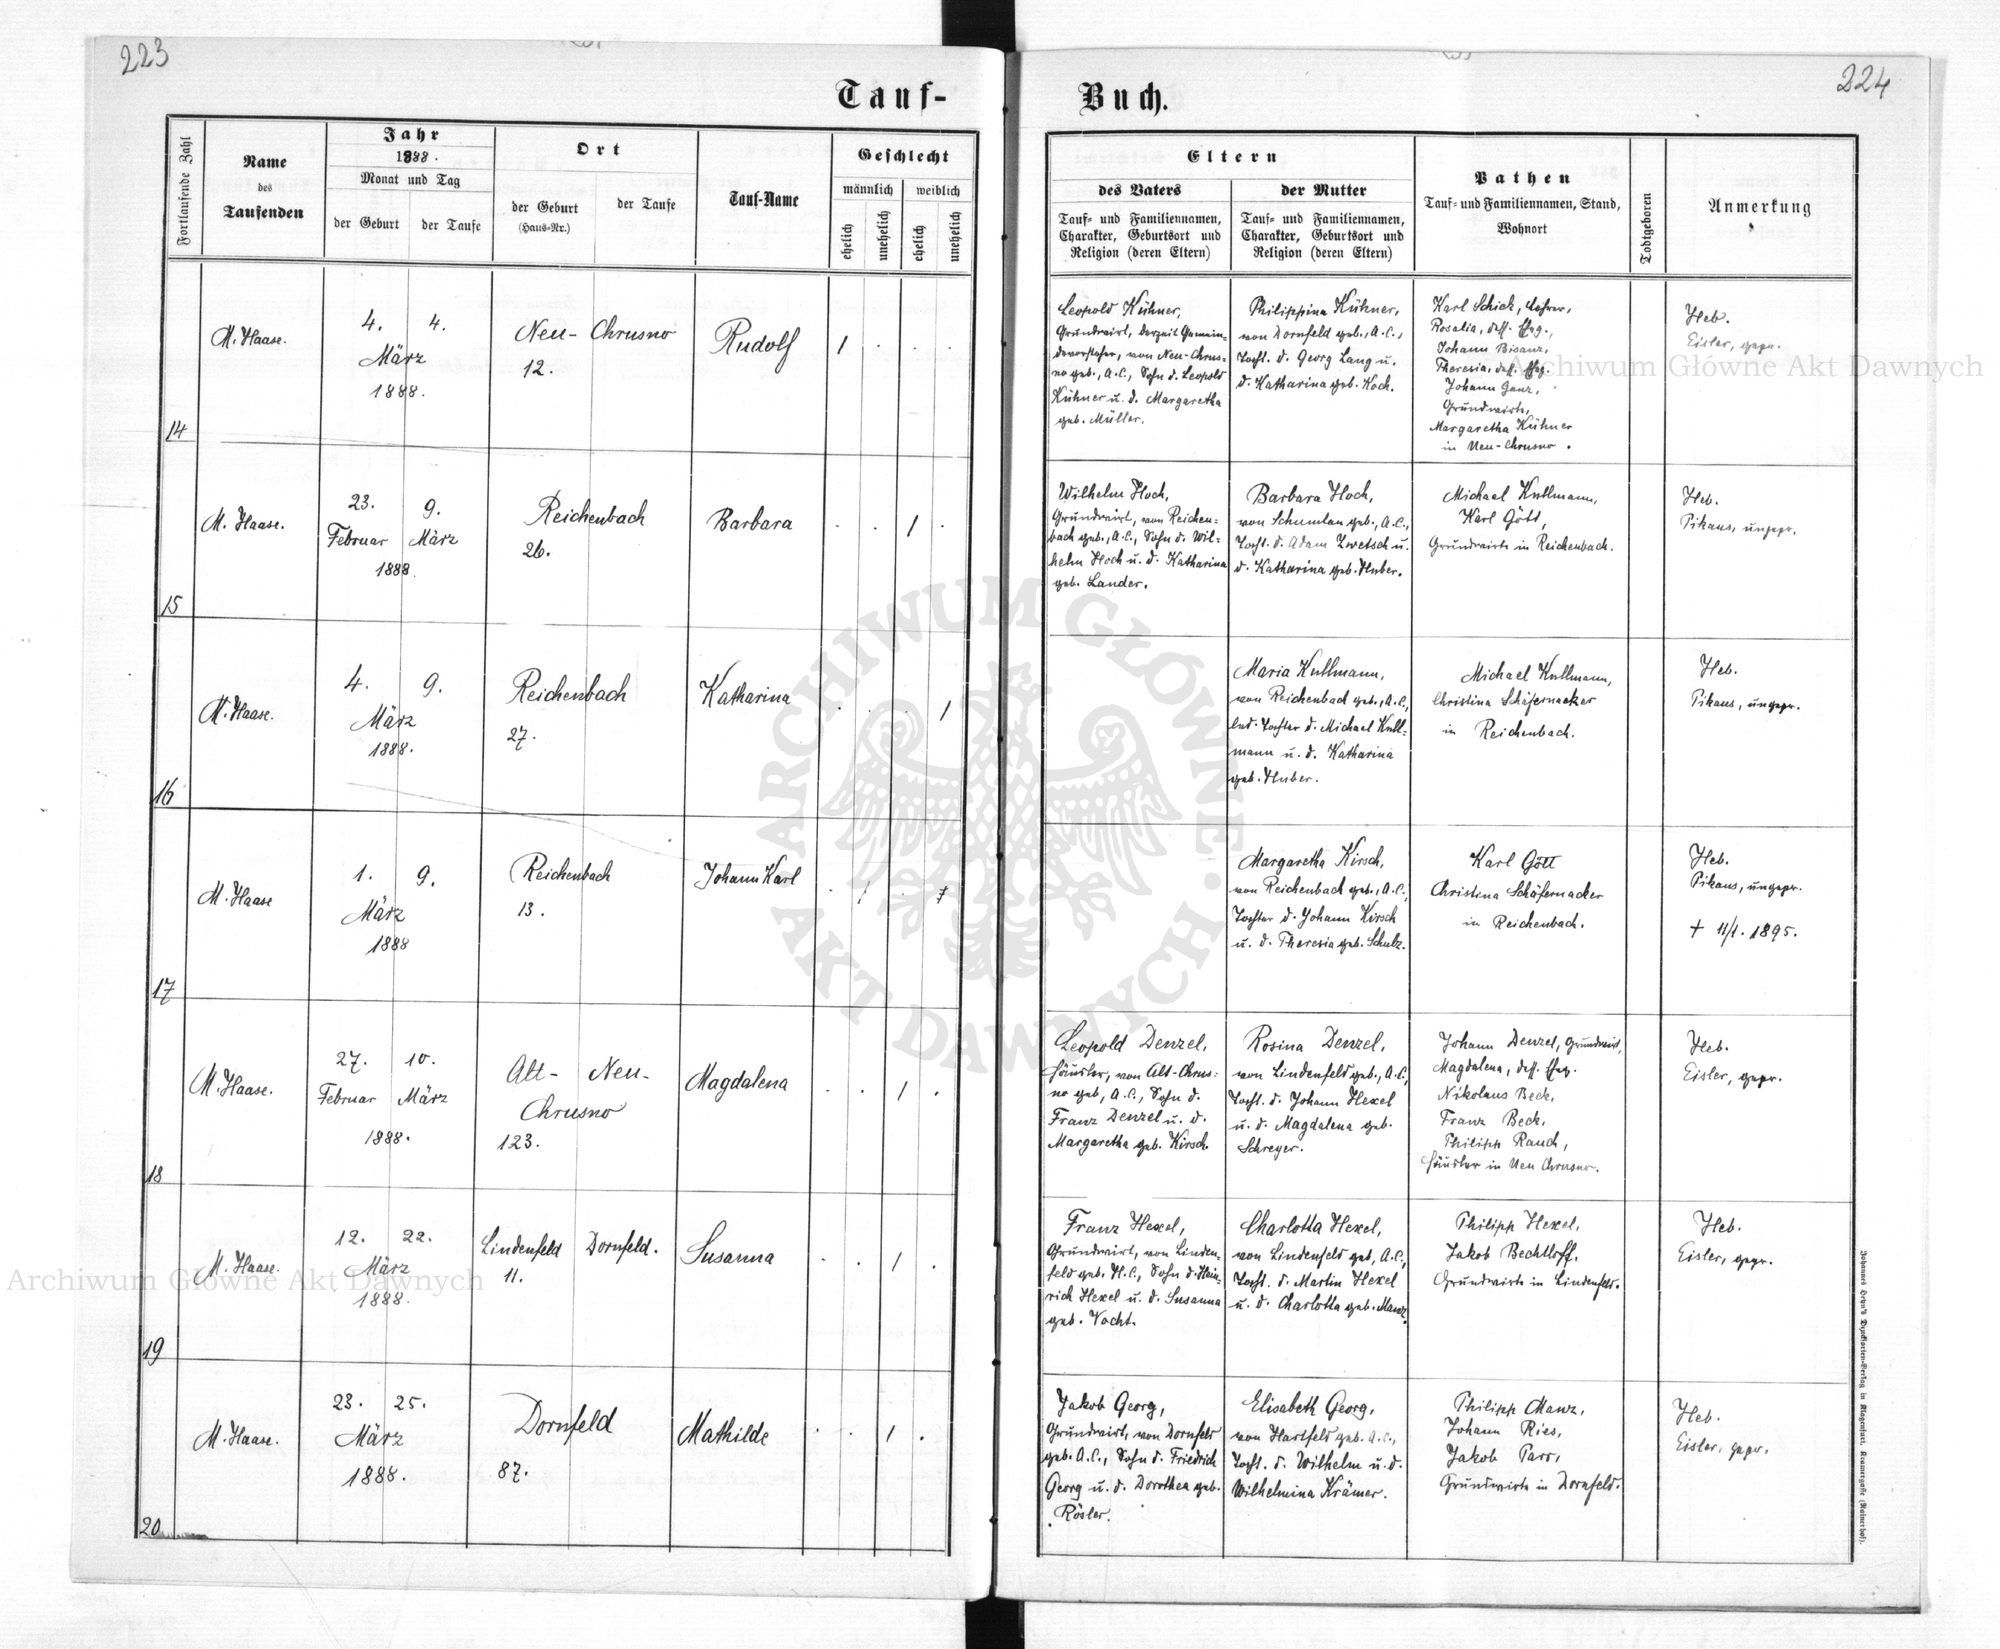 223
224
Tauf-
Buch.
Fortlaufende Zahl
Name
des
Taufenden
Jahr
1888.
Monat und Tag
der Geburt
der Taufe
Ort
der Geburt
(Haus-Nr.)
der Taufe
Tauf-Name
Geschlecht
männlich
weiblich
ehelich
unehelich
ehelich
unehelich
Eltern
des Vaters
Tauf- und Familiennamen,
Charakter, Geburtsort und
Religion (deren Eltern)
der Mutter
Tauf- und Familiennamen,
Charakter, Geburtsort und
Religion (deren Eltern)
Pathen
Tauf- und Familiennamen, Stand,
Wohnort
Todtgeboren
Anmerkung
14
M. Haase.
4. 4.
März
1888.
Neu- Chrusno
12.
Rudolf
1 . . .
Leopold Kühner,
Grundwirt, derzeit Gemein-
devorsteher, von Neu-Chrus-
no geb., A.C., Sohn d. Leopold
Kühner u. d. Margaretha
geb. Müller.
Philippina Kühner,
von Dornfeld geb., A.C.,
Tocht. d. Georg Lang u.
d. Katharina geb. Koch.
Karl Schick, Lehrer,
Rosalia, dess. Eheg.,
Johann Bisanz,
Theresia, dess. Eheg.
Johann Ganz,
Grundwirte,
Margaretha Kühner
in Neu-Chrusno.
Heb.
Eisler, gepr.
15
M. Haase.
23. 9.
Februar März
1888.
Reichenbach
26.
Barbara
. . 1 .
Wilhelm Hoch,
Grundwirt, von Reichen-
bach geb., A.C., Sohn d. Wil-
helm Hoch u. d. Katharina
geb. Lander.
Barbara Hoch,
von Schumlau geb., A.C.,
Tocht. d. Adam Zwetsch u.
d. Katharina geb. Huber.
Michael Kullmann,
Karl Gött,
Grundwirte in Reichenbach.
Heb.
Pikaus, ungepr.
16
M. Haase.
4. 9.
März
1888.
Reichenbach
27.
Katharina
. . . 1
Maria Kullmann,
von Reichenbach geb., A.C.,
led. Tochter d. Michael Kull-
mann u. d. Katharina
geb. Huber.
Michael Kullmann,
Christina Schäfernacker
in Reichenbach.
Heb.
Pikaus, ungepr.
17
M. Haase
1. 9.
März
1888
Reichenbach
13.
Johann Karl
. 1 .
Margaretha Kirsch,
von Reichenbach geb., A.C.,
Tochter d. Johann Kirsch
u. d. Theresia geb. Schulz.
Karl Gött
Christina Schäfernacker
in Reichenbach.
Heb.
Pikaus, ungepr.
† 11/1. 1895.
18
M. Haase.
27. 10.
Februar März
1888.
Alt- Neu-
Chrusno
123.
Magdalena
. . 1 .
Leopold Denzel,
Häusler, von Alt-Chrus-
no geb, A.C., Sohn d.
Franz Denzel u. d.
Margaretha geb. Kirsch.
Rosina Denzel,
von Lindenfeld geb., A.C.,
Tocht. d. Johann Hexel
u. d. Magdalena geb.
Schreyer.
Johann Denzel, Grundwirt,
Magdalena, dess. Eheg.
Nikolaus Beck,
Franz Beck,
Philipp Rauch,
Häusler in Neu Chrusno.
Heb.
Eisler, gepr.
19
M. Haase.
12. 22.
März
1888.
Lindenfeld Dornfeld.
11.
Susanna
. . 1 .
Franz Hexel,
Grundwirt, von Linden-
feld geb. H.C., Sohn d. Hein-
rich Hexel u. d. Susanna
geb. Vocht.
Charlotta Hexel,
von Lindenfeld geb, A.C.,
Tocht. d. Martin Hexel
u. d. Charlotta geb. Manz.
Philipp Hexel,
Jakob Bechtloff,
Grundwirte in Lindenfeld.
Heb.
Eisler, gepr.
20
M. Haase.
23. 25.
März
1888.
Dornfeld
87.
Mathilde
. . 1 .
Jakob Georg,
Grundwirt, von Dornfeld
geb. A.C., Sohn d. Friedrich
Georg u. d. Dorothea geb.
Rösler.
Elisabeth Georg,
von Hartfeld geb. A.C.,
Tocht. d. Wilhelm u. d.
Wilhelmina Krämer.
Philipp Manz,
Johann Ries,
Jakob Parr,
Grundwirte in Dornfeld.
Heb.
Eisler, gepr.
Johannes Heyn's Drucksorten-Verlag in Klagenfurt, Kramergasse (Kainerhof).
Archiwum Główne Akt Dawnych
Archiwum Główne Akt Dawnych
ARCHIWUM GŁÓWNE · AKT DAWNYCH ·